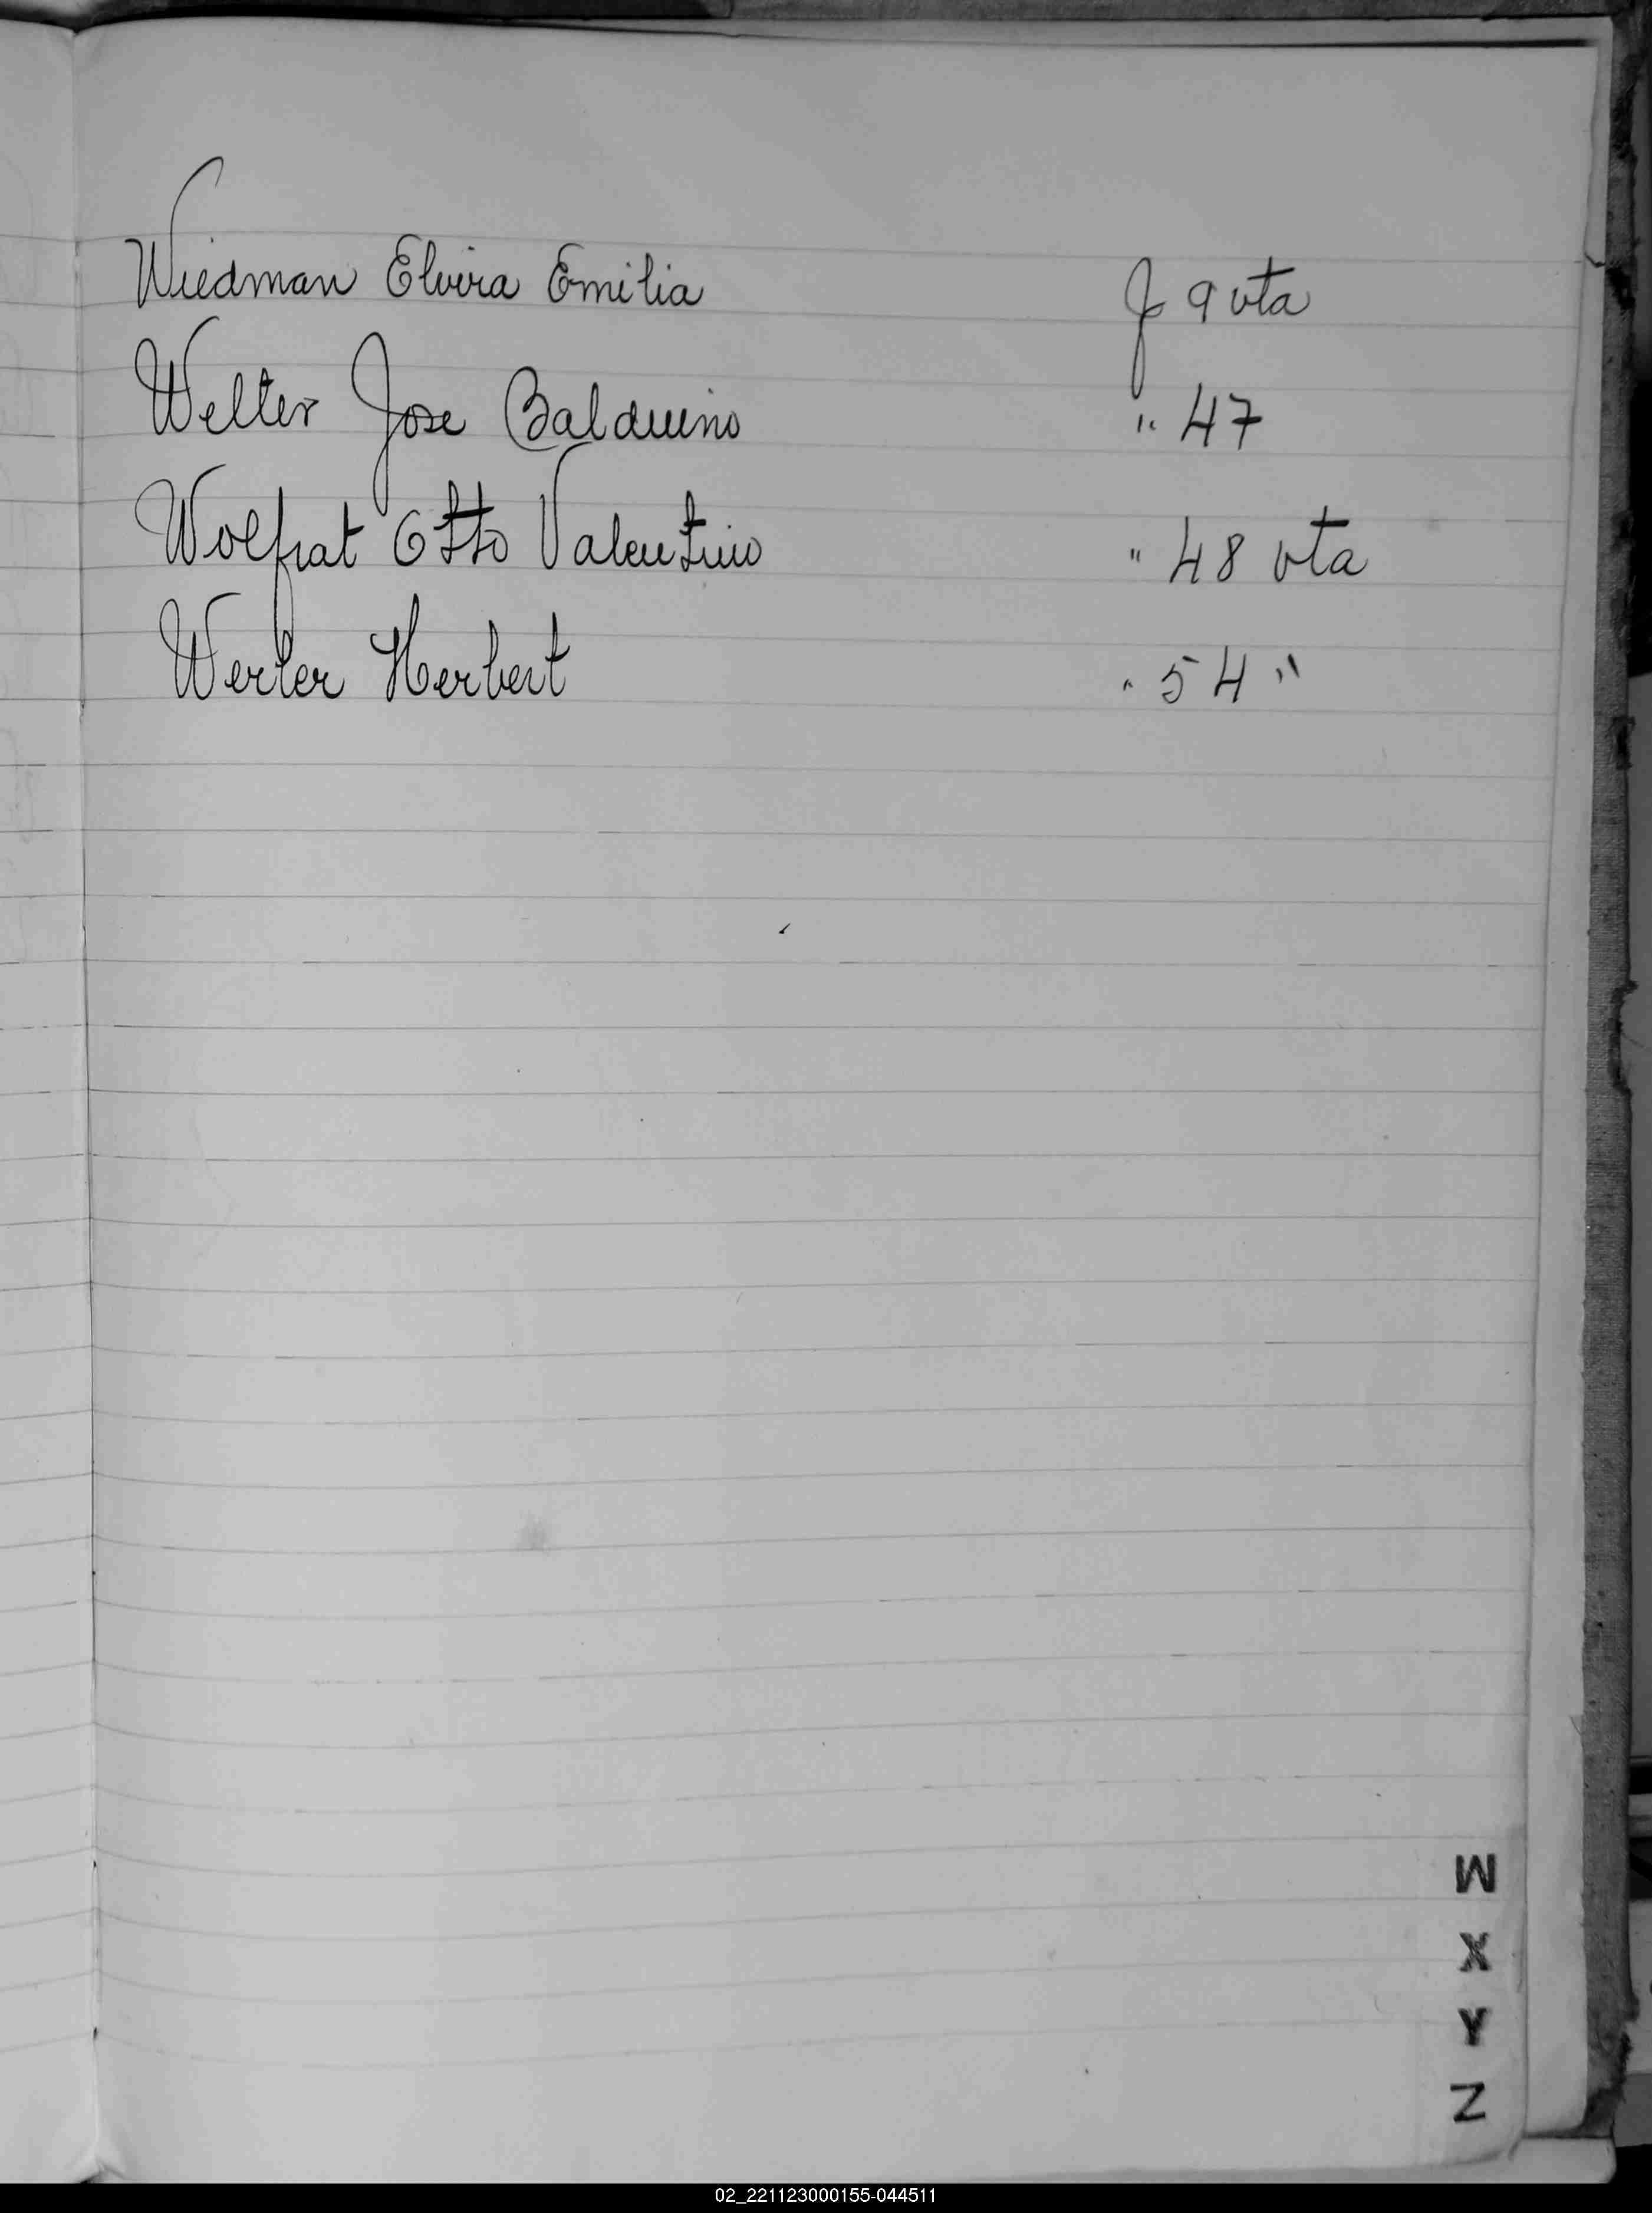 Wiedman Elvira Emilia f 9 vta
Welter Jose Balduino " 47
Wolfrat Otto Valentino " 48 vta
Werler Herbert " 54 "
W
X
Y
Z
02_221123000155-044511